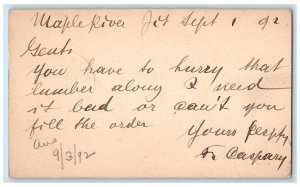 Maple River Jct Sept 1 92
Gents
You have to hurry that
lumber along I need
it bad or can't you
fill the order
Yours Respy
F. Caspary
Ans
9/3/92